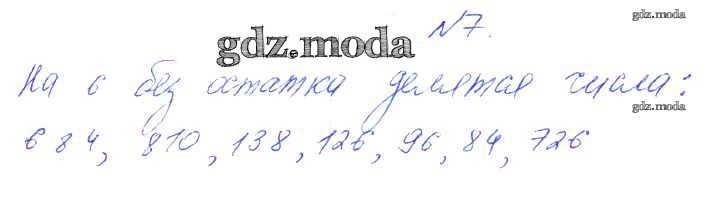 gdz.moda
№7.
gdz.moda
На 6 без остатка делятся числа:
gdz.moda
684, 810, 138, 126, 96, 84, 726